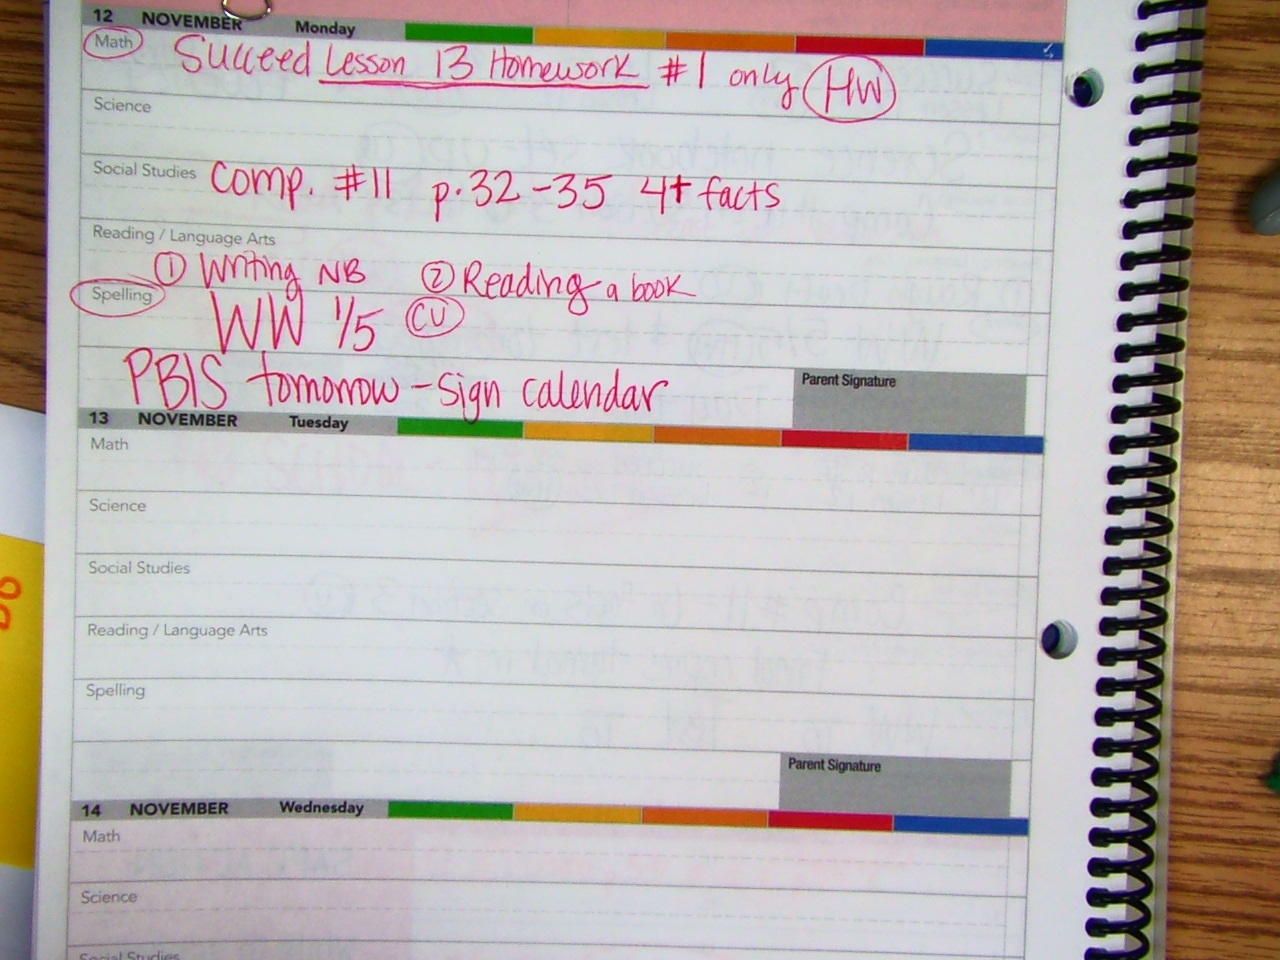 12 NOVEMBER Monday
Math Succeed Lesson 13 Homework #1 only HW
Science
Social Studies Comp. #11 p.32-35 4+ facts
Reading / Language Arts
① Writing NB ② Reading a book
Spelling WW 1/5 CU
PBIS tomorrow - sign calendar
Parent Signature
13 NOVEMBER Tuesday
Math
Science
Social Studies
Reading / Language Arts
Spelling
Parent Signature
14 NOVEMBER Wednesday
Math
Science
Social Studies